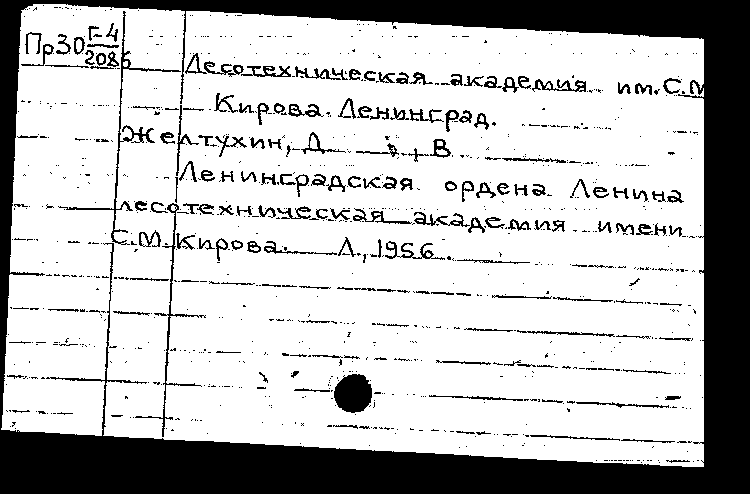 Пр30 Г-4
2086
Лесотехническая академия им. С.М
Кирова. Ленинград.
Желтухин, Д , В
Ленинградская ордена Ленина
лесотехническая академия имени
С.М. Кирова. Л., 1956.